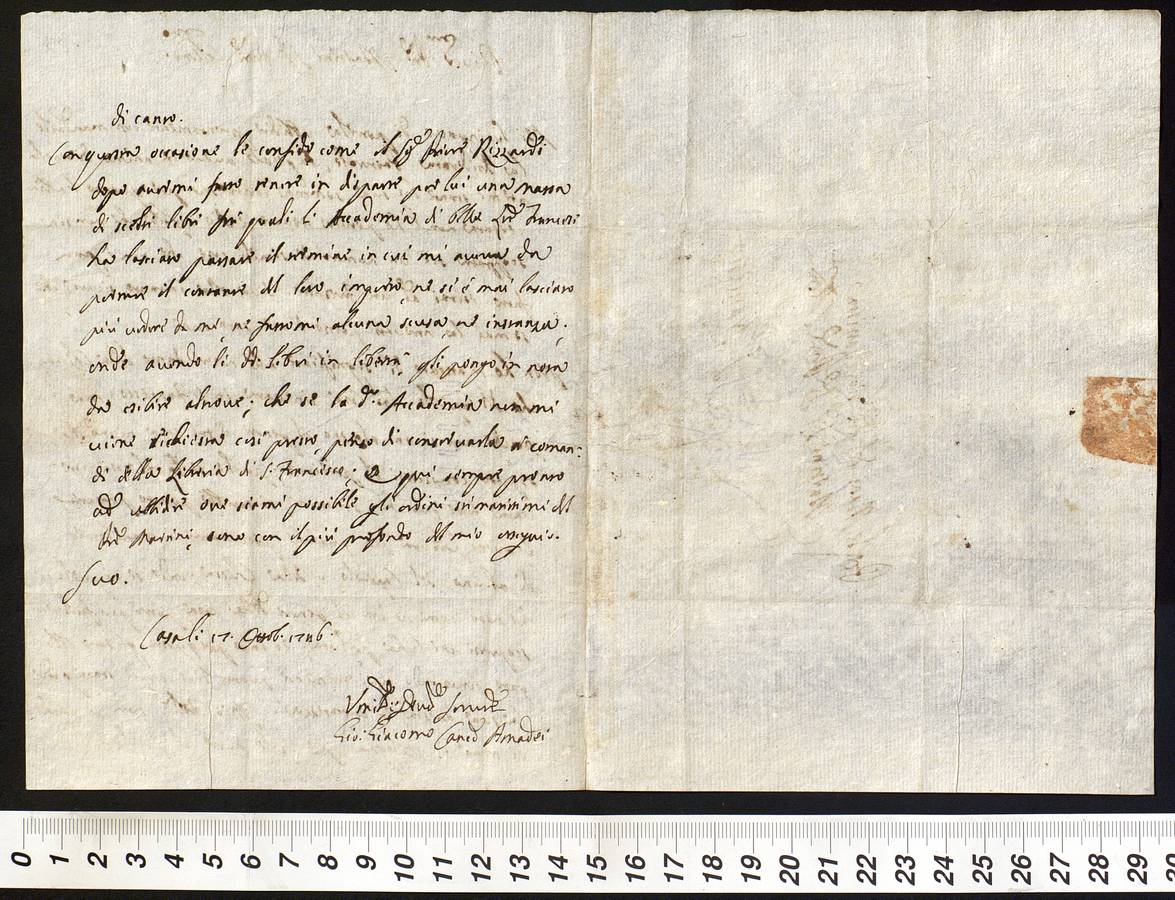 di canto.
Con questa occasione le confido come il Sig.e Priore Rizzardi
dopo avermi fatto tenere in disparte per lui una massa
di scelti libri fra quali li Accademia di belle Let.e Francesi
ha lasciato passare il termine in cui mi aveva da
portare il contante del loro importo, ne si è mai lasciato
più vedere da me, ne fattomi alcuna scusa, ne instanza,
onde avendo li dd. Libri in libertà, gli pongo in nota
da esibire altrove; che se la d.a Accademia non mi
viene richiesta così presto, penso di conservarla a' coman=
di della Libreria di S. Francesco; e qui sempre pronto
ad ubbidire ove siami possibile gli ordini stimatissimi del
P're Martini, sono con il più profondo del mio ossequio.
Suo.
Casa li 17. Ottob. 1746.
Devo Servid.e
Gio: Giacomo Can.co Amadei
0 1 2 3 4 5 6 7 8 9 10 11 12 13 14 15 16 17 18 19 20 21 22 23 24 25 26 27 28 29